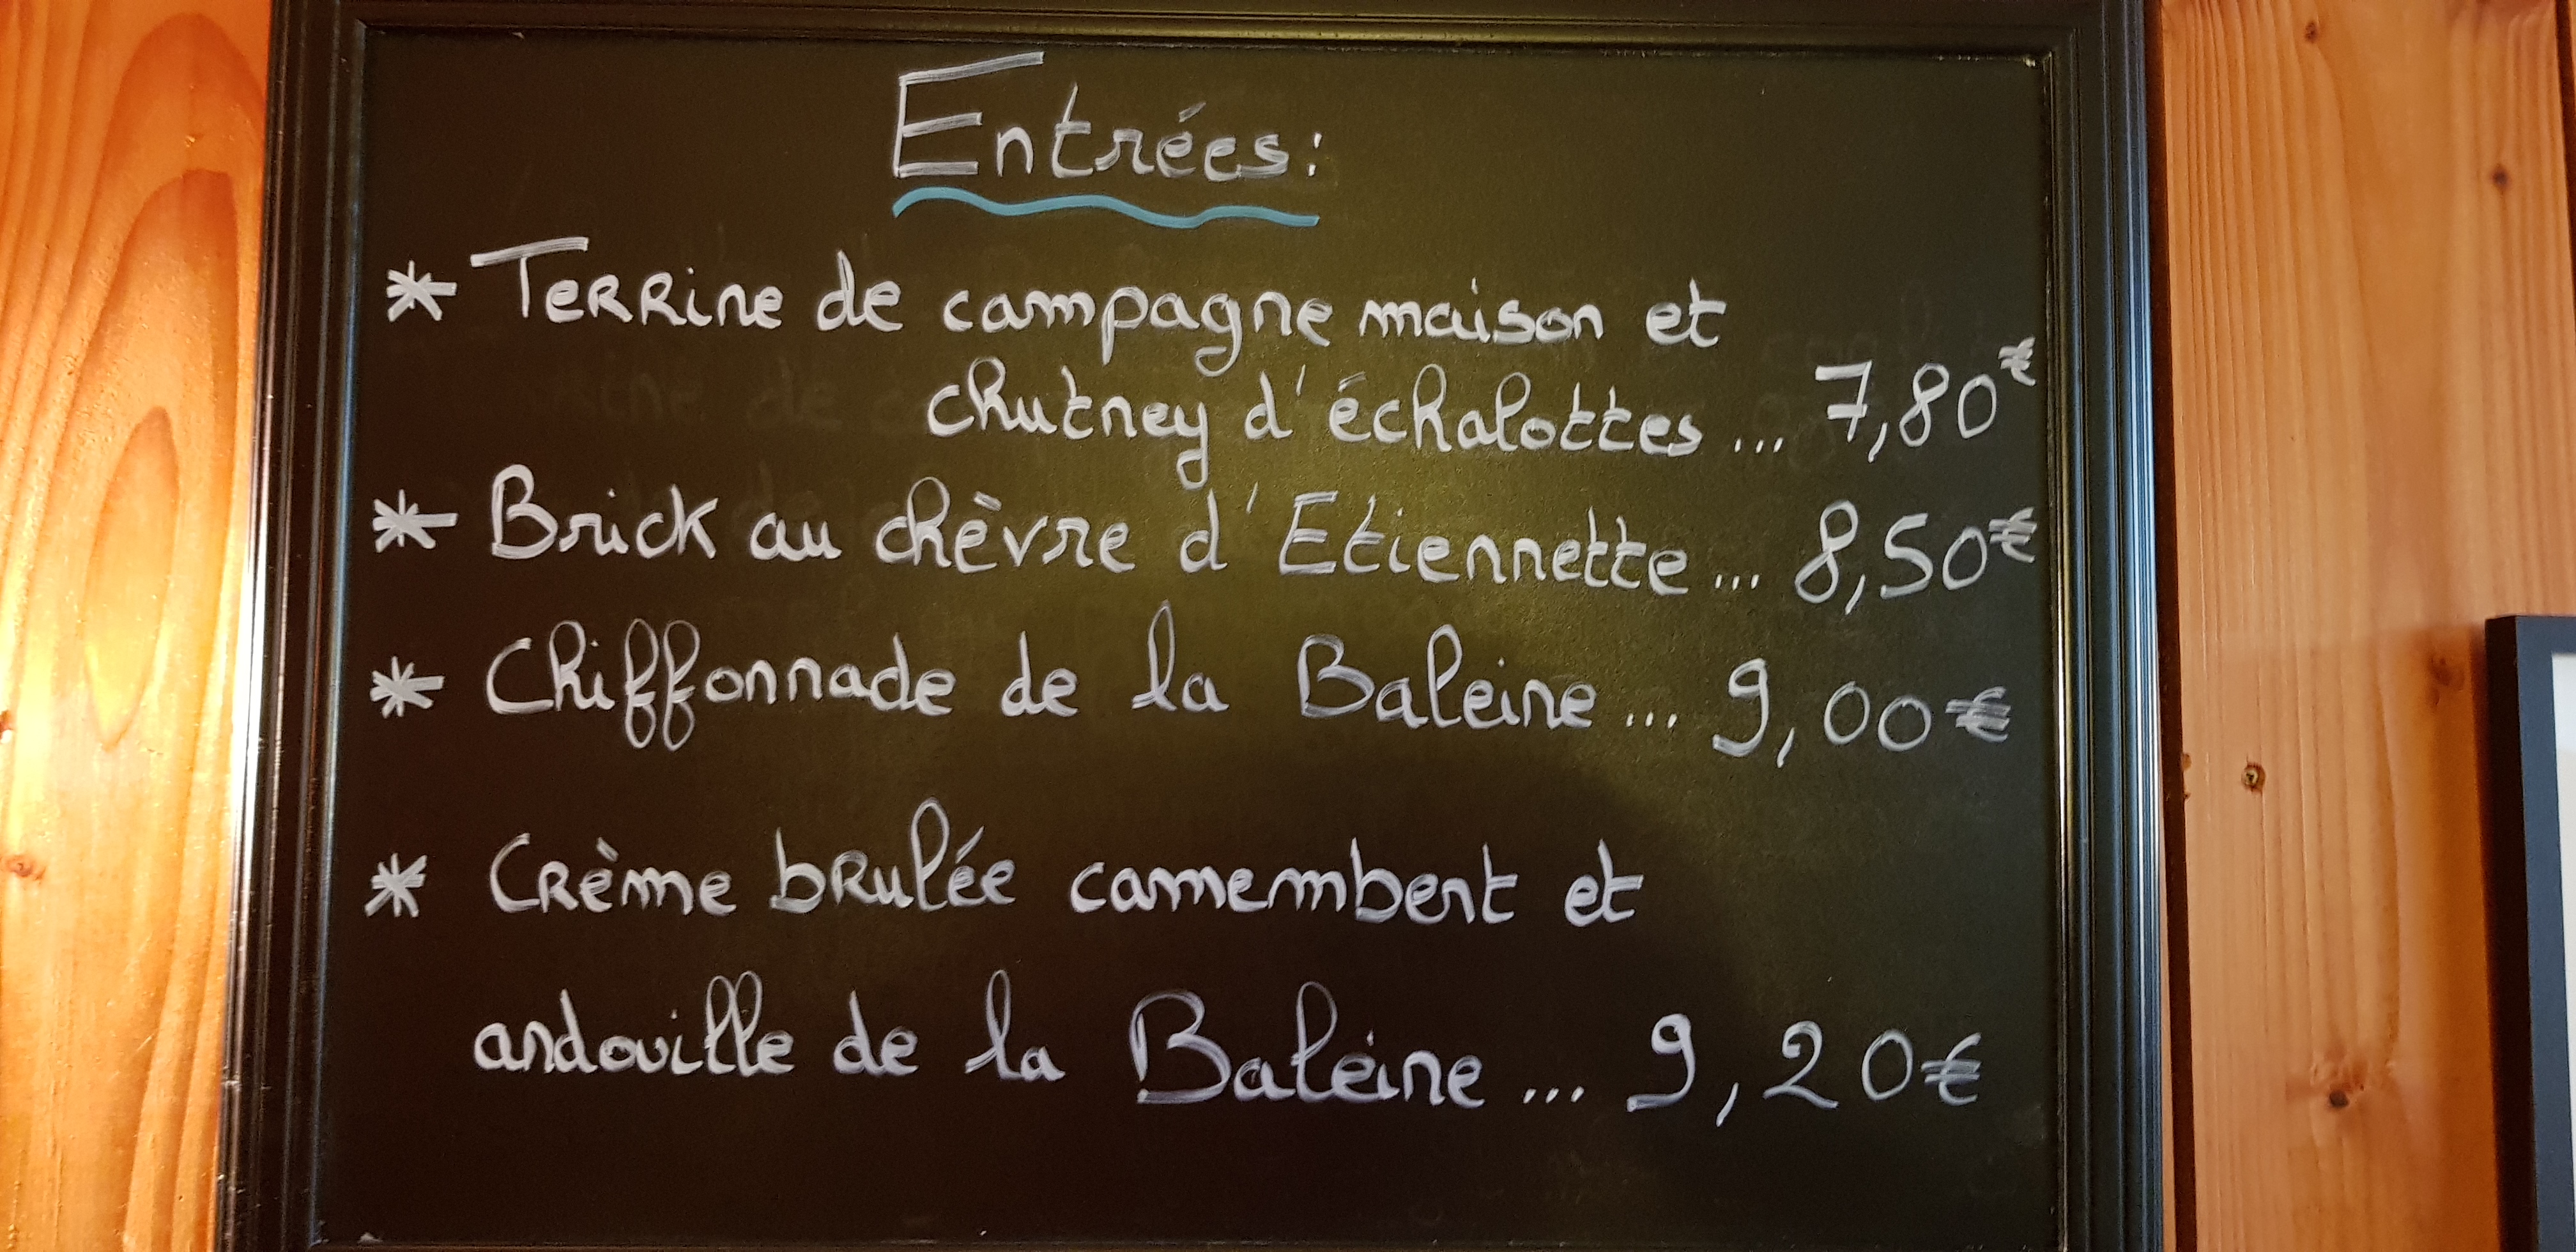 Entrées:
* Terrine de campagne maison et
chutney d'échalottes ... 7,80€
* Brick au chèvre d'Etiennette ... 8,50€
* Chiffonnade de la Baleine ... 9,00€
* Crème brulée camembert et
andouille de la Baleine ... 9,20€